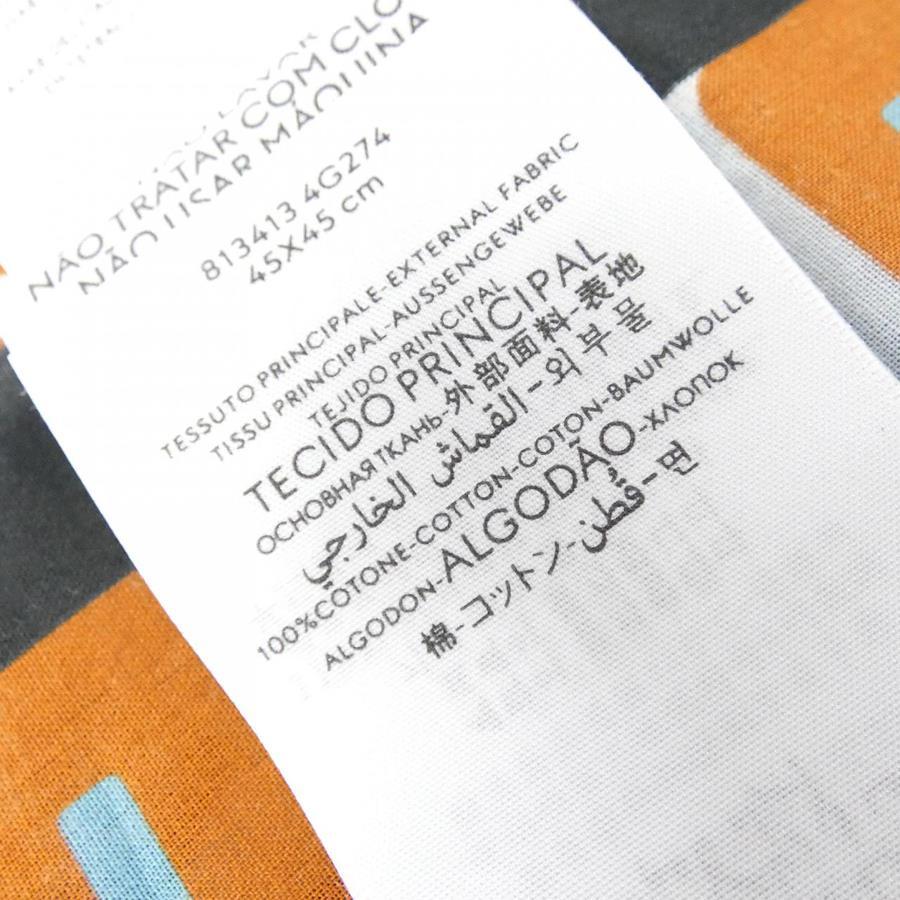 NÃO TRATAR COM CLO
NÃO USAR MÁQUINA
813413 4G274
45X45 cm
TESSUTO PRINCIPALE-EXTERNAL FABRIC
TISSU PRINCIPAL-AUSSENGEWEBE
TEJIDO PRINCIPAL
TECIDO PRINCIPAL
ОСНОВНАЯ ТКАНЬ-外部面料-表地
القماش الخارجي-외부 물
100%COTONE-COTTON-COTON-BAUMWOLLE
ALGODON-ALGODÃO-ХЛОПОК
棉-コットン-قُطن-면